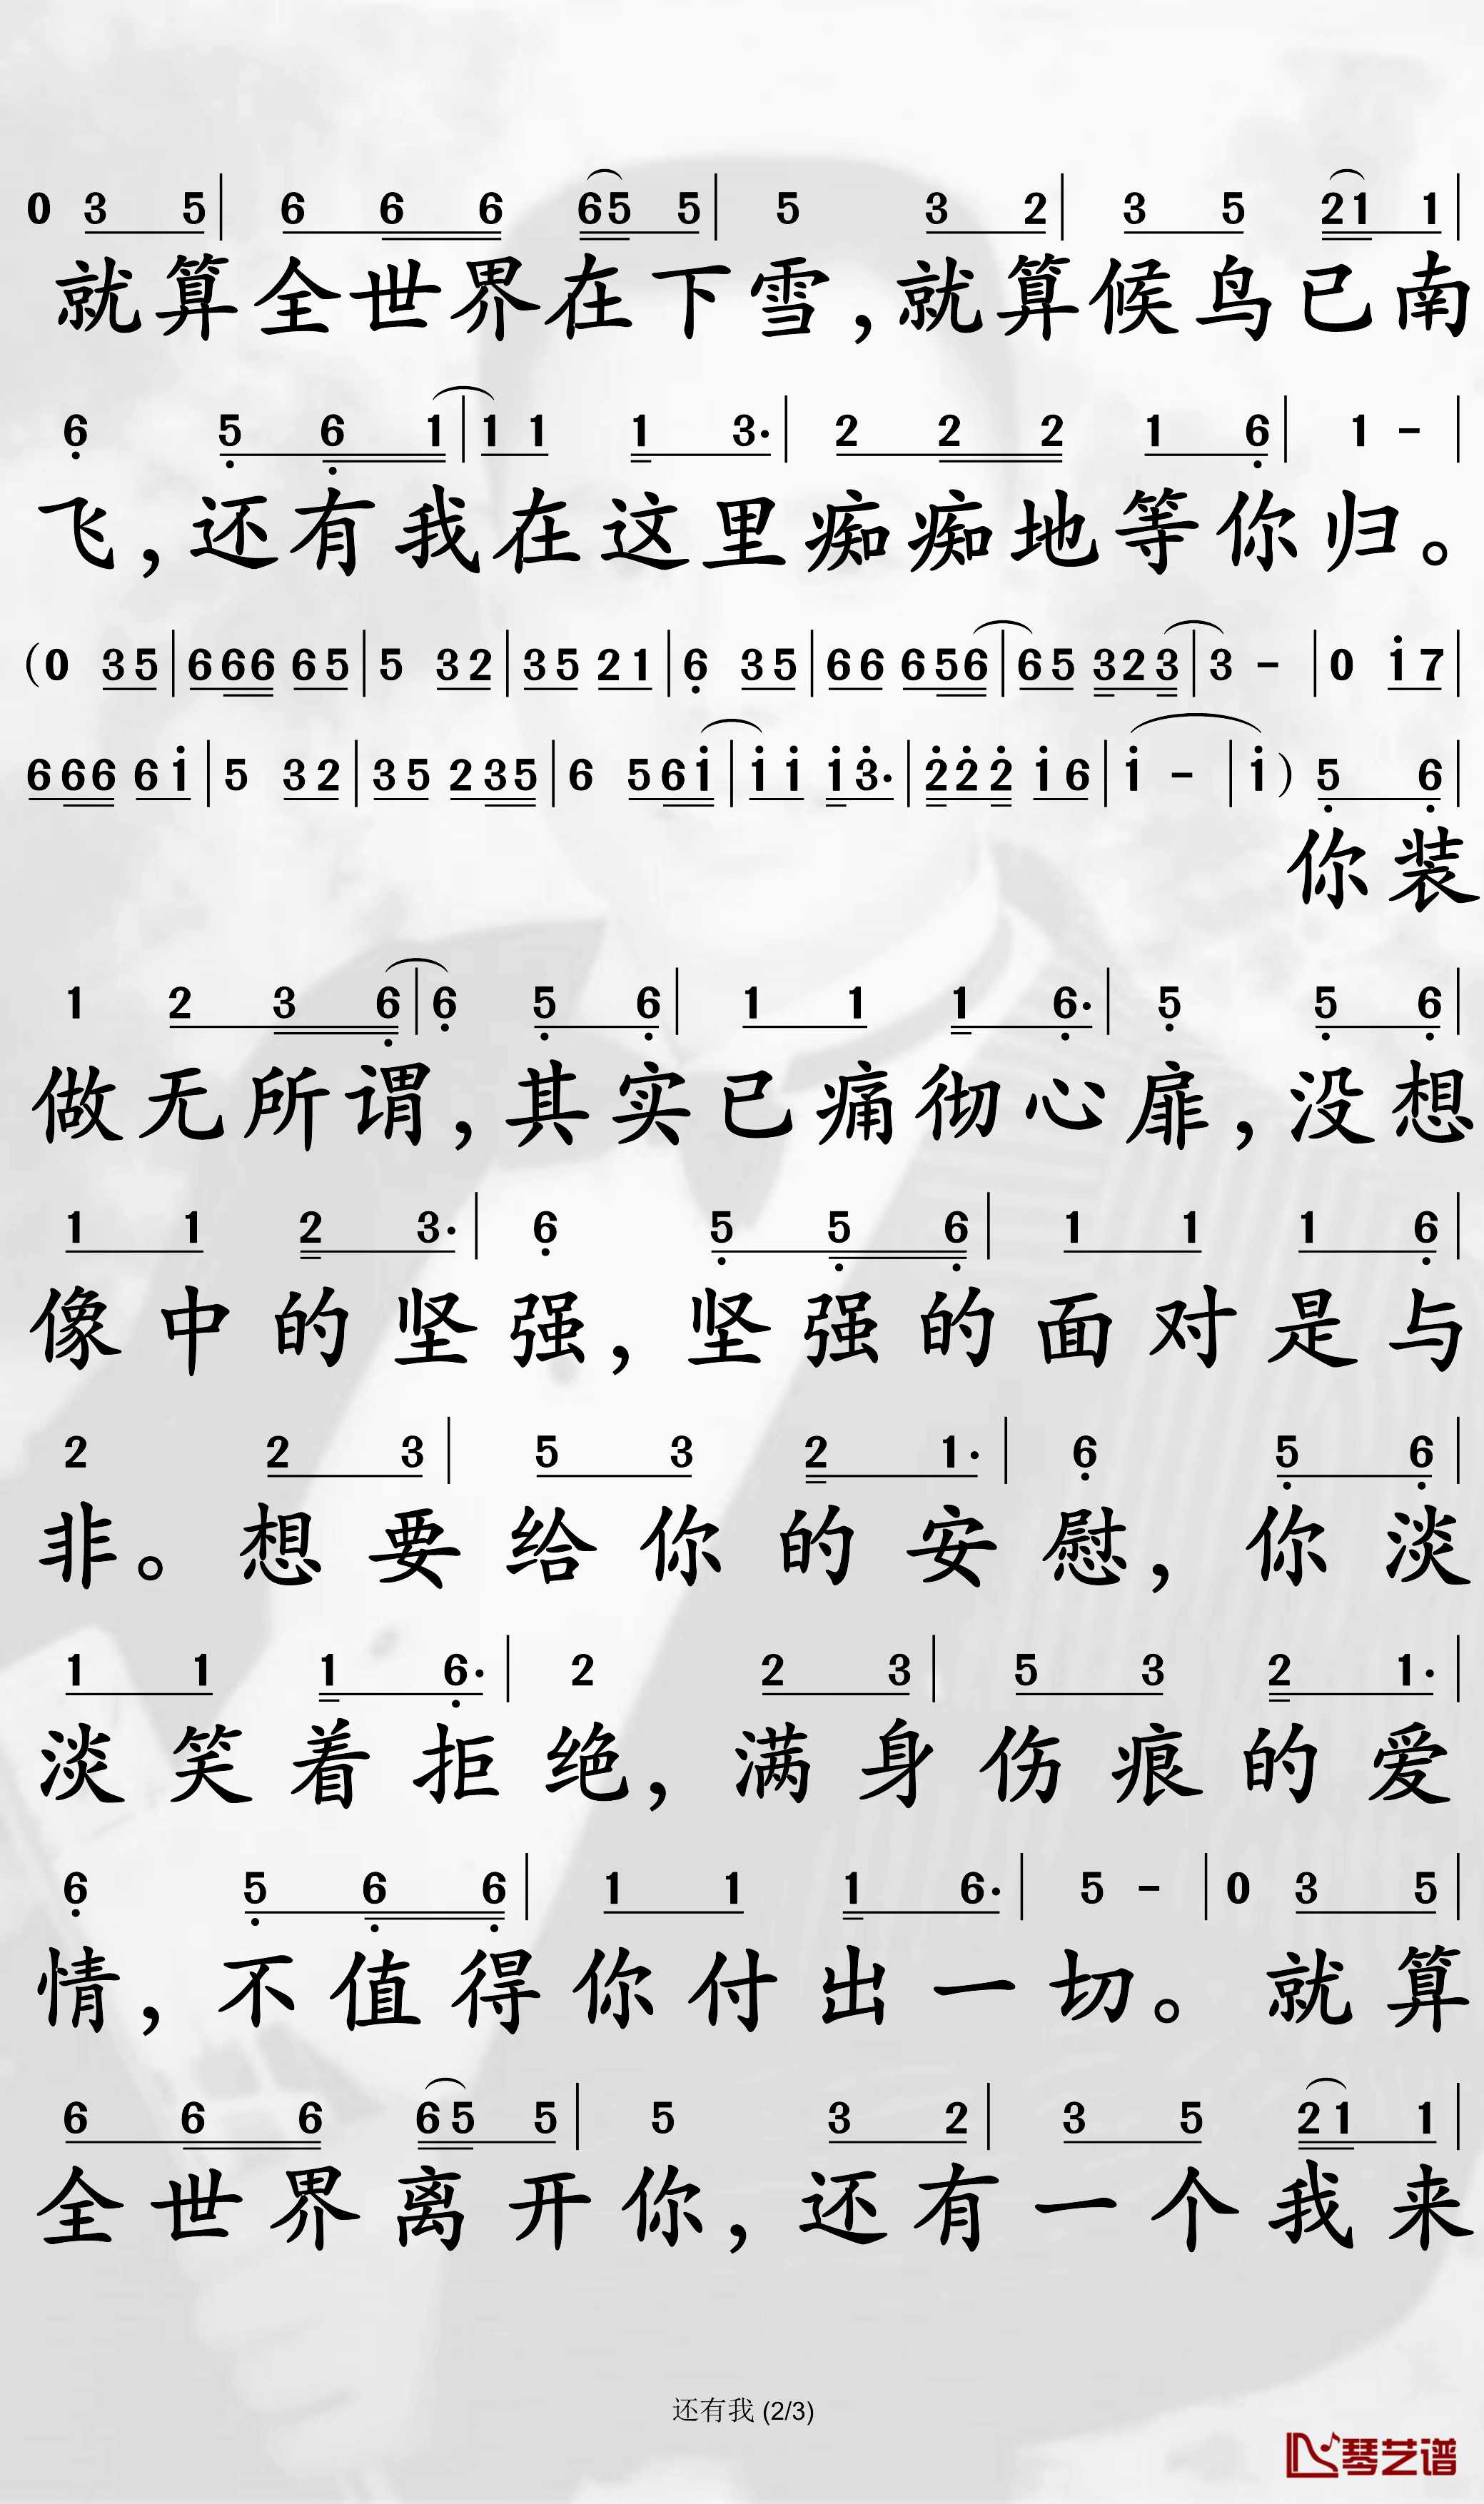 0 3 5 | 6 6 6 6 5 5 | 5 3 2 | 3 5 2 1 1 |
就算全世界在下雪,就算候鸟已南
6 5 6 1 | 1 1 1 3· | 2 2 2 1 6 | 1 - |
飞,还有我在这里痴痴地等你归。
(0 3 5 | 6 6 6 6 5 | 5 3 2 | 3 5 2 1 | 6 3 5 | 6 6 6 5 6 | 6 5 3 2 3 | 3 - | 0 1 7 |
6 6 6 6 1 | 5 3 2 | 3 5 2 3 5 | 6 5 6 1 | 1 1 1 3· | 2 2 2 1 6 | 1 - | 1) 5 6 |
你装
1 2 3 6 | 6 5 6 | 1 1 1 6· | 5 5 6 |
做无所谓,其实已痛彻心扉,没想
1 1 2 3· | 6 5 5 6 | 1 1 1 6 |
像中的坚强,坚强的面对是与
2 2 3 | 5 3 2 1· | 6 5 6 |
非。想要给你的安慰,你淡
1 1 1 6· | 2 2 3 | 5 3 2 1· |
淡笑着拒绝,满身伤痕的爱
6 5 6 6 | 1 1 1 6· | 5 - | 0 3 5 |
情,不值得你付出一切。就算
6 6 6 6 5 5 | 5 3 2 | 3 5 2 1 1 |
全世界离开你,还有一个我来
还有我 (2/3)
琴艺谱